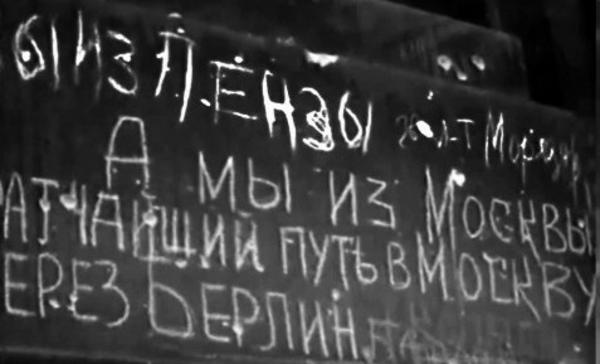 Ы ИЗ ПЕНЗЫ
А МЫ ИЗ МОСКВЫ
АТЧАЙШИЙ ПУТЬ В МОСКВУ
ЕРЕЗ БЕРЛИН